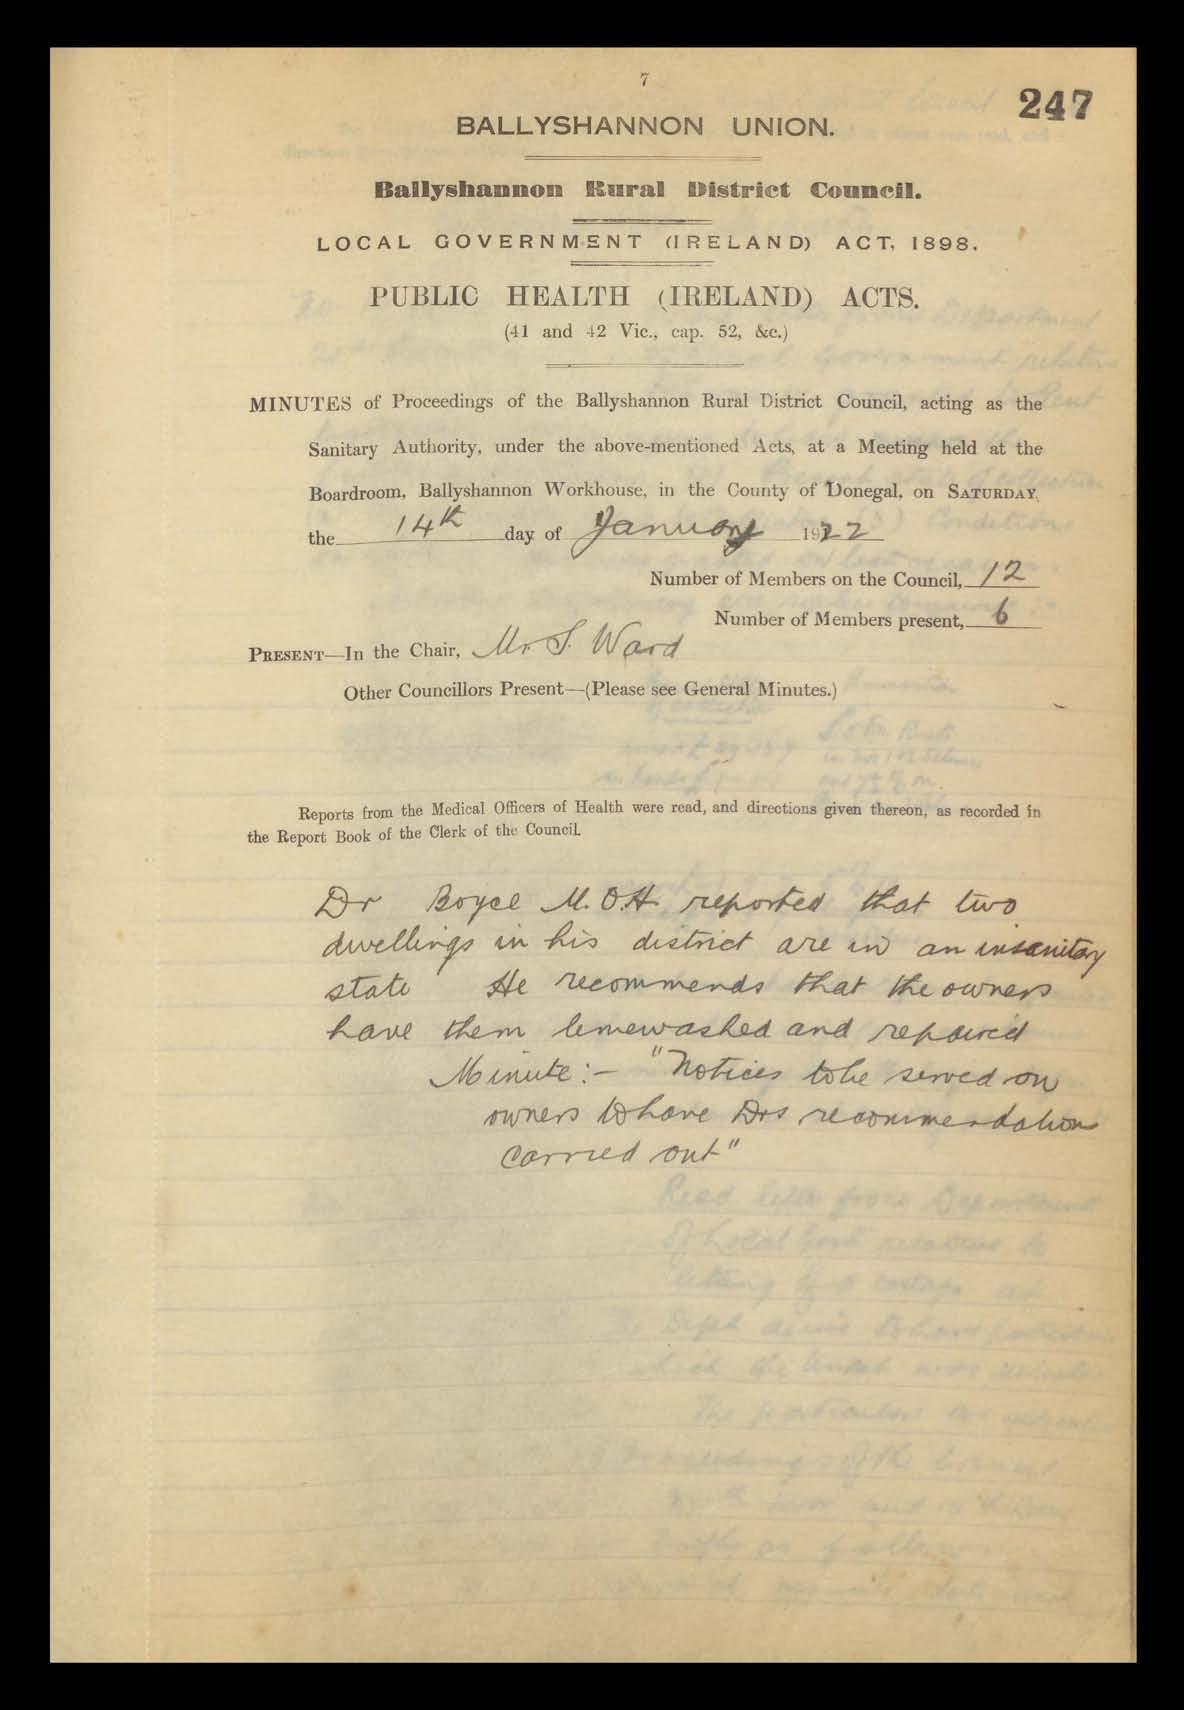 7
247
BALLYSHANNON UNION.
Ballyshannon Rural District Council.
LOCAL GOVERNMENT (IRELAND) ACT, 1898.
PUBLIC HEALTH (IRELAND) ACTS.
(41 and 42 Vic., cap. 52, &c.)
MINUTES of Proceedings of the Ballyshannon Rural District Council, acting as the
Sanitary Authority, under the above-mentioned Acts, at a Meeting held at the
Boardroom, Ballyshannon Workhouse, in the County of Donegal, on SATURDAY,
the 14th day of January 1922
Number of Members on the Council, 12
Number of Members present, 6
PRESENT—In the Chair, Mr. S. Ward
Other Councillors Present—(Please see General Minutes.)
Reports from the Medical Officers of Health were read, and directions given thereon, as recorded in
the Report Book of the Clerk of the Council.
Dr Boyce M.O.H. reported that two
dwellings in his district are in an insanitary
state He recommends that the owners
have them limewashed and repaired
Minute:- "Notices to be served on
owners to have Drs recommendations
carried out"